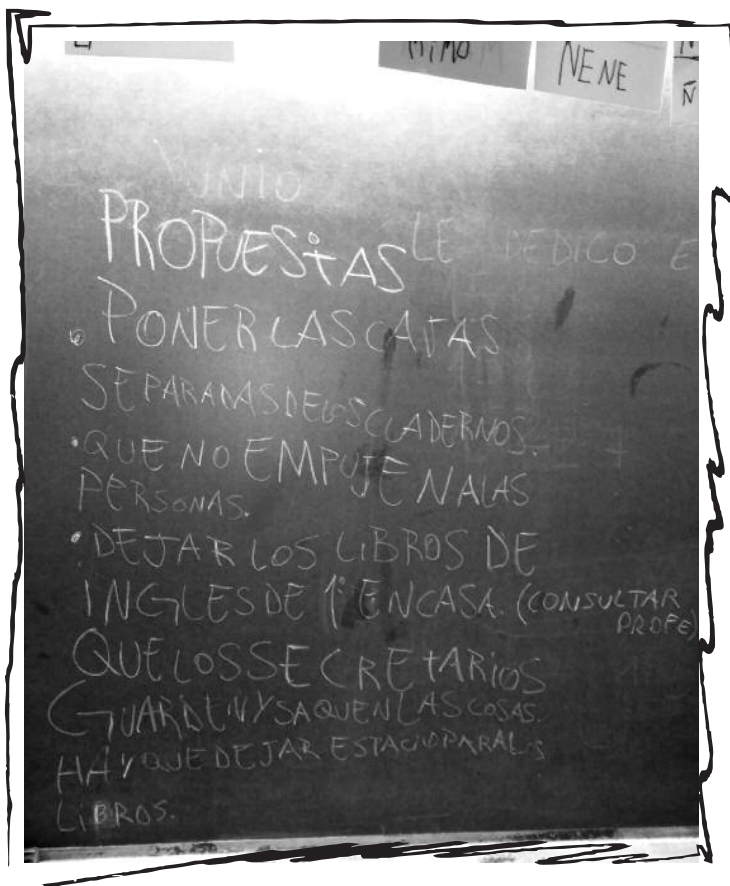 MIMO M
NENE
Ñ
JUNIO
PROPUESTAS
LE DEDICO E
. PONER LAS CAJAS
SEPARADAS DE LOS CUADERNOS.
. QUE NO EMPUJEN A LAS
PERSONAS.
. DEJAR LOS LIBROS DE
INGLES DE 1º EN CASA. (CONSULTAR
PROFE)
QUE LOS SECRETARIOS
GUARDEN Y SAQUEN LAS COSAS.
HAY QUE DEJAR ESTACIO PARA LOS
LIBROS.